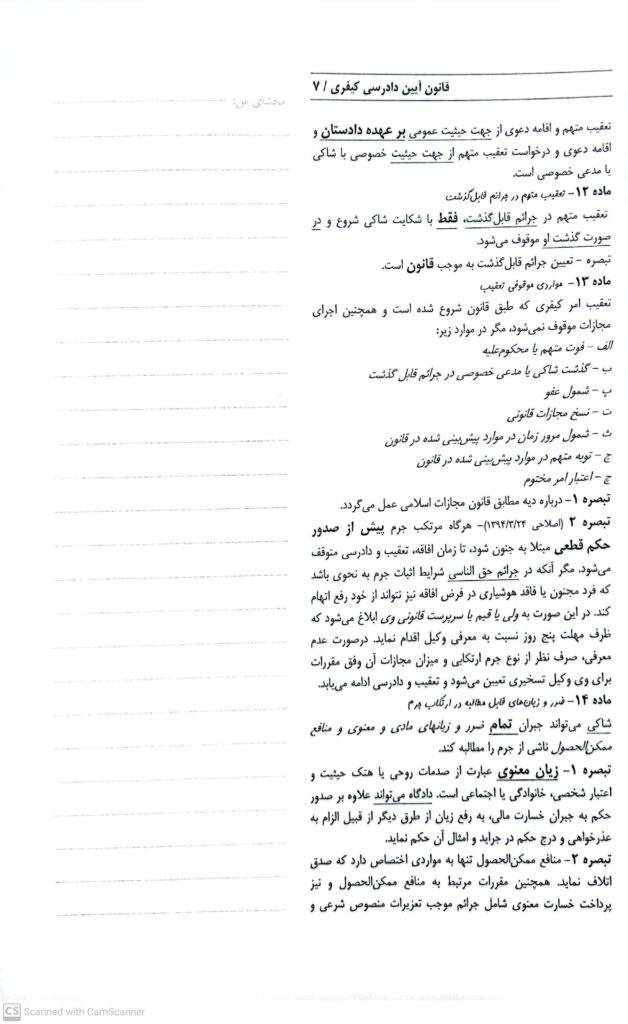 قانون آیین دادرسی کیفری / ۷
محشای من:
تعقیب متهم و اقامه دعوی از جهت حیثیت عمومی بر عهده دادستان و
اقامه دعوی و درخواست تعقیب متهم از جهت حیثیت خصوصی با شاکی
یا مدعی خصوصی است.
ماده ۱۲- تعقیب متهم در جرائم قابل‌گذشت
تعقیب متهم در جرائم قابل‌گذشت، فقط با شکایت شاکی شروع و در
صورت گذشت او موقوف می‌شود.
تبصره - تعیین جرائم قابل‌گذشت به موجب قانون است.
ماده ۱۳- مواردی موقوفی تعقیب
تعقیب امر کیفری که طبق قانون شروع شده است و همچنین اجرای
مجازات موقوف نمی‌شود، مگر در موارد زیر:
الف - فوت متهم یا محکوم‌علیه
ب - گذشت شاکی یا مدعی خصوصی در جرائم قابل گذشت
پ - شمول عفو
ت - نسخ مجازات قانونی
ث - شمول مرور زمان در موارد پیش‌بینی شده در قانون
ج - توبه متهم در موارد پیش‌بینی شده در قانون
چ - اعتبار امر مختوم
تبصره ۱- درباره دیه مطابق قانون مجازات اسلامی عمل می‌گردد.
تبصره ۲ (اصلاحی ۱۳۹۴/۳/۲۴)- هرگاه مرتکب جرم پیش از صدور
حکم قطعی مبتلا به جنون شود، تا زمان افاقه، تعقیب و دادرسی متوقف
می‌شود. مگر آنکه در جرائم حق الناسی شرایط اثبات جرم به نحوی باشد
که فرد مجنون یا فاقد هوشیاری در فرض افاقه نیز نتواند از خود رفع اتهام
کند. در این صورت به ولی یا قیم یا سرپرست قانونی وی ابلاغ می‌شود که
ظرف مهلت پنج روز نسبت به معرفی وکیل اقدام نماید. درصورت عدم
معرفی، صرف نظر از نوع جرم ارتکابی و میزان مجازات آن وفق مقررات
برای وی وکیل تسخیری تعیین می‌شود و تعقیب و دادرسی ادامه می‌یابد.
ماده ۱۴- ضرر و زیان‌های قابل مطالبه در ارتکاب جرم
شاکی می‌تواند جبران تمام ضرر و زیانهای مادی و معنوی و منافع
ممکن‌الحصول ناشی از جرم را مطالبه کند.
تبصره ۱- زیان معنوی عبارت از صدمات روحی یا هتک حیثیت و
اعتبار شخصی، خانوادگی یا اجتماعی است. دادگاه می‌تواند علاوه بر صدور
حکم به جبران خسارت مالی، به رفع زیان از طرق دیگر از قبیل الزام به
عذرخواهی و درج حکم در جراید و امثال آن حکم نماید.
تبصره ۲- منافع ممکن‌الحصول تنها به مواردی اختصاص دارد که صدق
اتلاف نماید. همچنین مقررات مرتبط به منافع ممکن‌الحصول و نیز
پرداخت خسارت معنوی شامل جرائم موجب تعزیرات منصوص شرعی و
CS Scanned with CamScanner